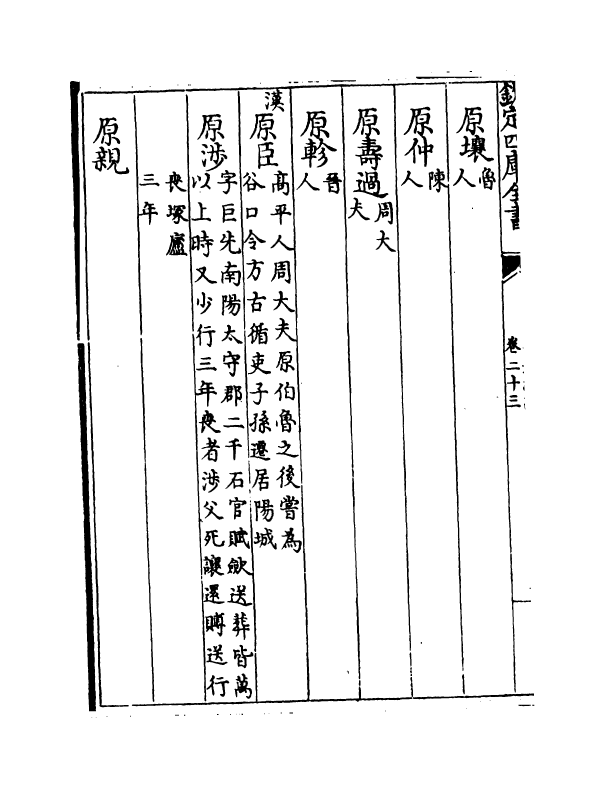 欽定四庫全書
卷二十三
原壤魯人
原仲陳人
原壽過周大夫
原軫晉人
漢
原臣高平人周大夫原伯魯之後嘗為谷口令方古循吏子孫遷居陽城
原涉字巨先南陽太守郡二千石官賦歛送葬皆萬以上時又少行三年喪者涉父死讓還賻送行
喪塚廬三年
原親